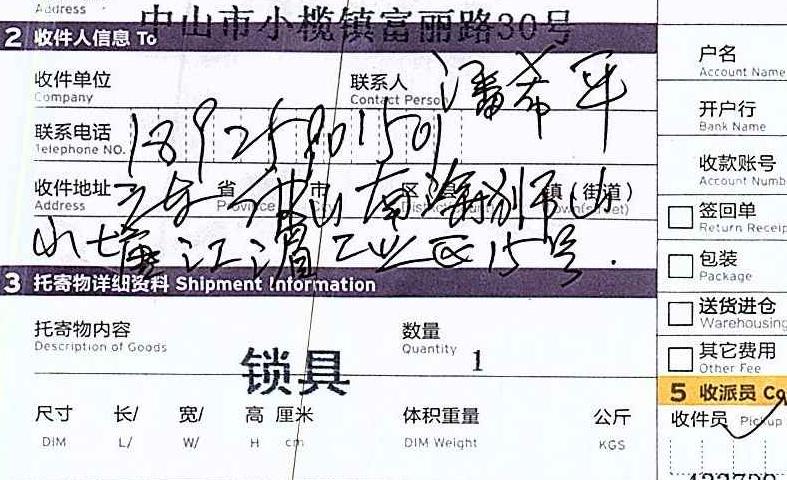 Address
中山市小榄镇富丽路30号
2 收件人信息 To
收件单位
Company
联系人
Contact Person
潘希军
联系电话
Telephone NO.
18925901501
收件地址
Address
广东 省 佛山 市 南海 区(县) 狮山 镇(街道)
Province
小塘 工业区15号.
3 托寄物详细资料 Shipment Information
托寄物内容
Description of Goods
锁具
数量
Quantity
1
尺寸 长/ 宽/ 高 厘米 体积重量 公斤
DIM L/ W/ H cm DIM Weight KGS
户名
Account Name
开户行
Bank Name
收款账号
Account Numb
签回单
Return Receip
包装
Package
送货进仓
Warehousing
其它费用
Other Fee
5 收派员 Co
收件员 Pickup